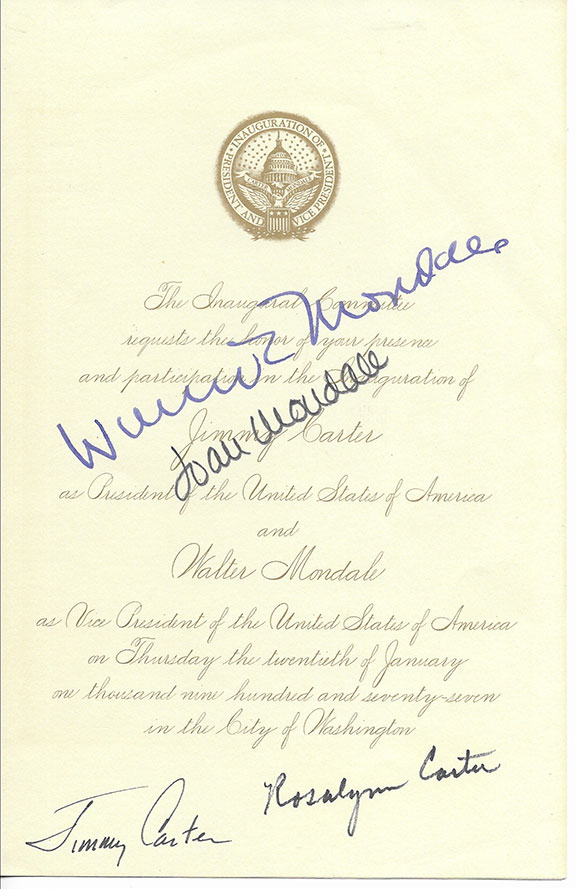 INAUGURATION OF PRESIDENT AND VICE PRESIDENT
CARTER MONDALE
The Inaugural Committee
requests the honor of your presence
and participation in the Inauguration of
Jimmy Carter
as President of the United States of America
and
Walter Mondale
as Vice President of the United States of America
on Thursday the twentieth of January
one thousand nine hundred and seventy-seven
in the City of Washington
Mondale
Joan Mondale
Rosalynn Carter
Jimmy Carter